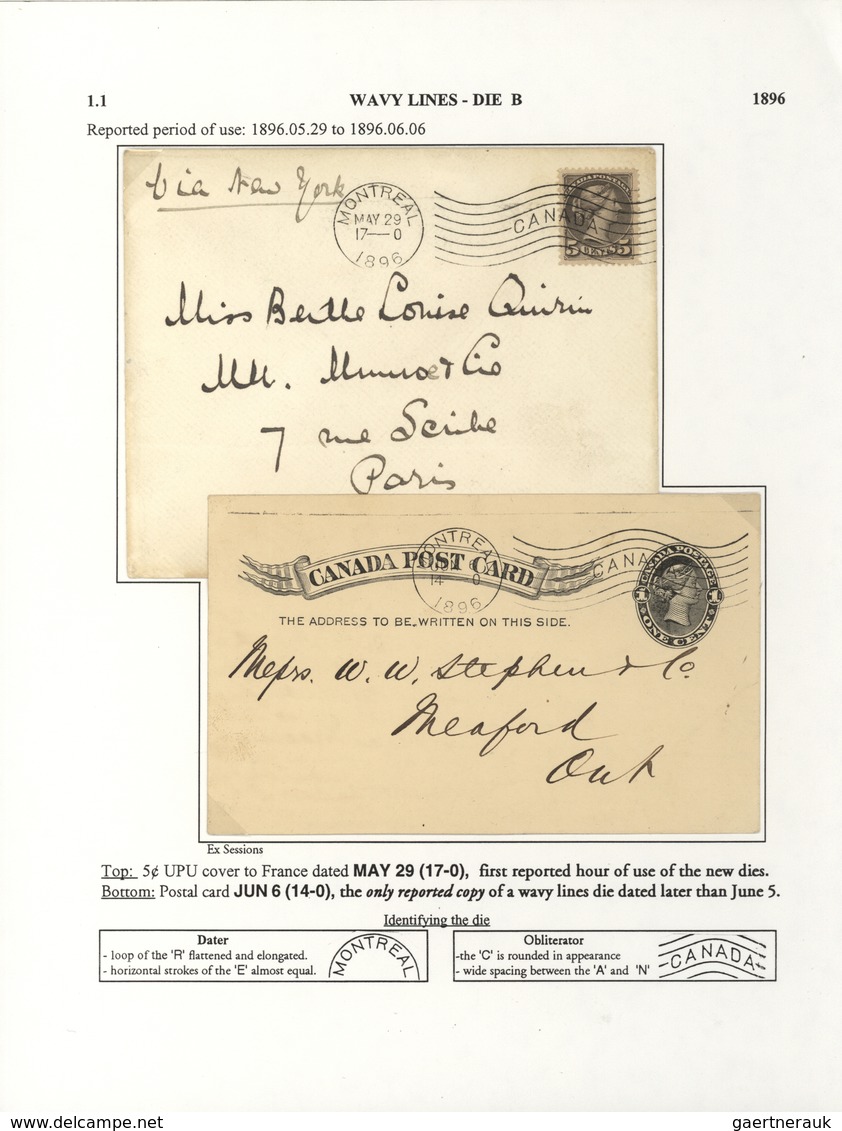 1.1 WAVY LINES - DIE B 1896
Reported period of use: 1896.05.29 to 1896.06.06
Via New York
MONTREAL
MAY 29
17—0
1896
CANADA
CANADA POSTAGE
5 CENTS 5
Miss Berthe Louise Quirin
Munroe & Cie
7 rue Scribe
Paris
MONTREAL
14 0
1896
CANADA POST CARD
CANA
CANADA POSTAGE
1 1
ONE CENT
THE ADDRESS TO BE WRITTEN ON THIS SIDE.
Messrs. W. W. Stephen & Co.
Meaford
Ont
Ex Sessions
Top: 5¢ UPU cover to France dated MAY 29 (17-0), first reported hour of use of the new dies.
Bottom: Postal card JUN 6 (14-0), the only reported copy of a wavy lines die dated later than June 5.
Identifying the die
Dater
- loop of the 'R' flattened and elongated.
- horizontal strokes of the 'E' almost equal.
MONTREAL
Obliterator
-the 'C' is rounded in appearance
- wide spacing between the 'A' and 'N'
CANADA
www.delcampe.net
gaertnerauk